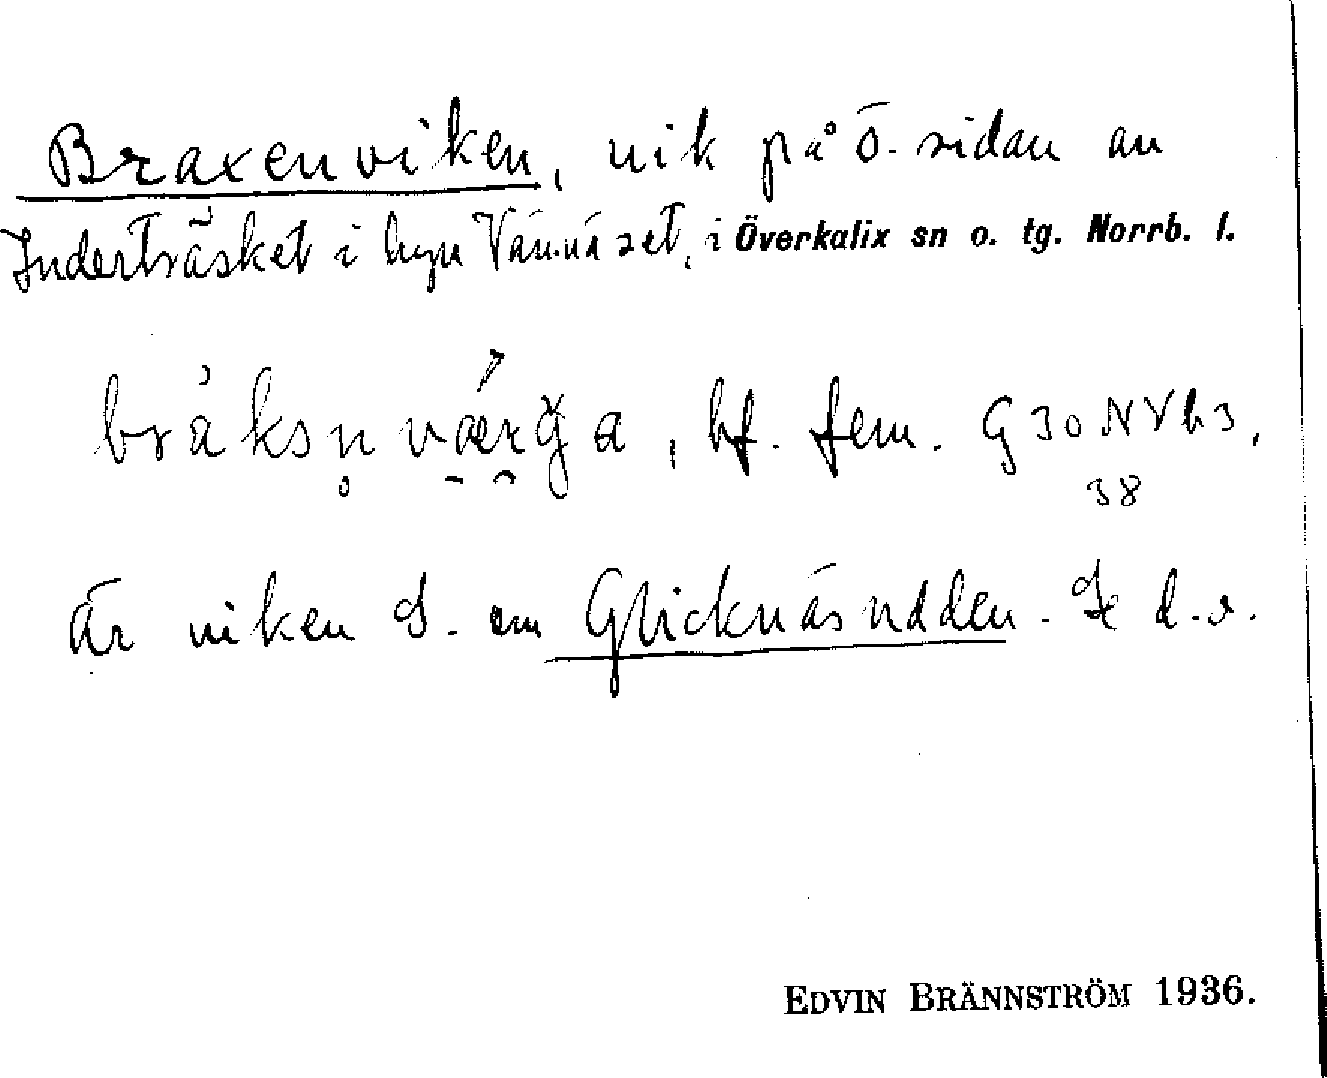 Braxenviken, vik på Ö. sidan av
Inderträsket i byn Vännäset, i Överkalix sn o. tg. Norrb. l.
bräksn̥ værǧa, bf. fem. G30NVh3,
38
Är viken S. om Glicknäsudden. Se d.o.
EDVIN BRÄNNSTRÖM 1936.